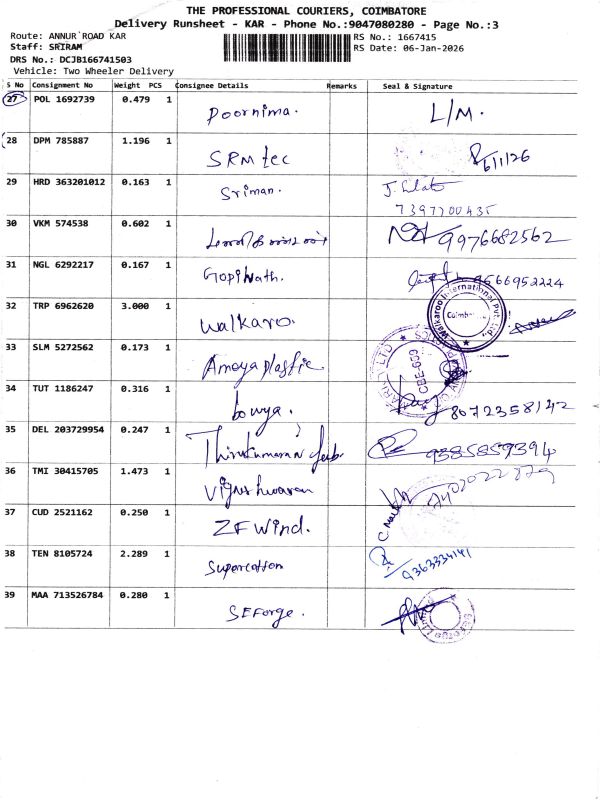 THE PROFESSIONAL COURIERS, COIMBATORE
Delivery Runsheet - KAR - Phone No.:9047080280 - Page No.:3
Route: ANNUR ROAD KAR RS No.: 1667415
Staff: SRIRAM RS Date: 06-Jan-2026
DRS No.: DCJB166741503
Vehicle: Two Wheeler Delivery
S No Consignment No Weight PCS Consignee Details Remarks Seal & Signature
27 POL 1692739 0.479 1 Poornima. L/M.
28 DPM 785887 1.196 1 SRM tec 6/1/26
29 HRD 363201012 0.163 1 Sriman.
7397700435
30 VKM 574538 0.602 1 9976682562
31 NGL 6292217 0.167 1 Gopinath. 9566952224
32 TRP 6962620 3.000 1 Walkaro. Walkaroo International Pvt. Ltd. Coimb
33 SLM 5272562 0.173 1 Ameya plastic CBE-659
34 TUT 1186247 0.316 1 bowya. 8072358142
35 DEL 203729954 0.247 1 Thirukumaran 9385859394
36 TMI 30415705 1.473 1 Vigneshwaran
37 CUD 2521162 0.250 1 ZF Wind.
38 TEN 8105724 2.289 1 Supercotton 9363334141
39 MAA 713526784 0.280 1 SEForge.